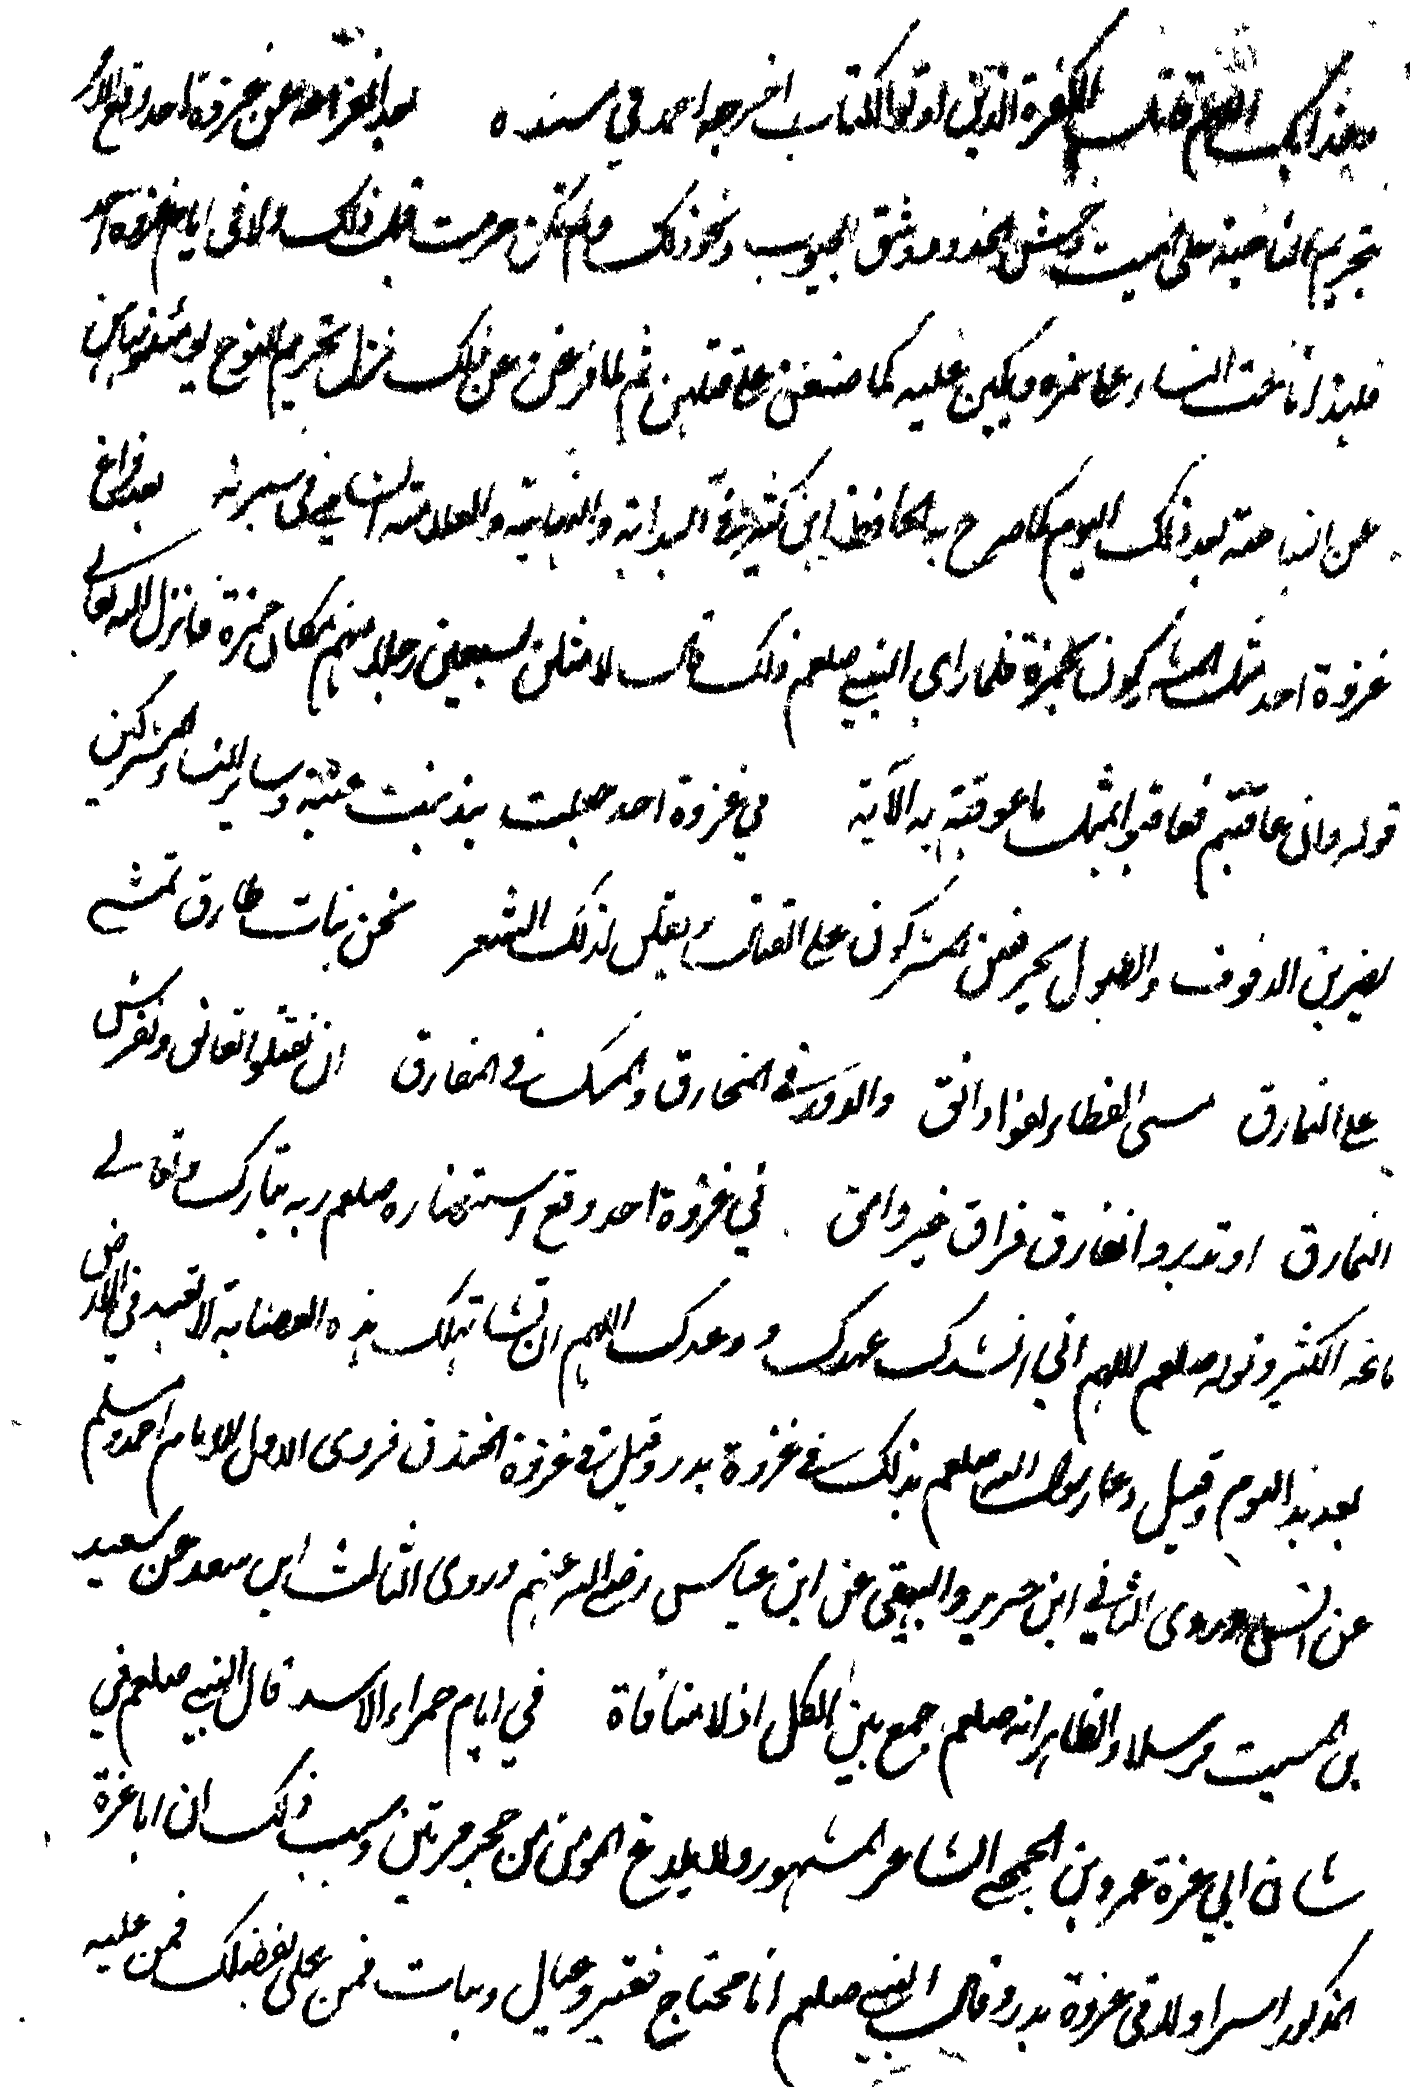 وعذابك اللهم قاتل الكفرة الذين اوتوا الكتاب اخرجه احمد في مسنده بعد الفراغ عن غزوة احد وقع الامر
بتحريم النياحة على الميت وخمش الخدود وشق الجيوب ونحو ذلك ولم تكن حرمت قبل ذلك ولا في ايام غزوة احد
فلهذا ناحت النساء على حمزة وبكين عليه كما صنعن على قتلاهن ثم لما فرغن عن ذلك نزل تحريم النوح يومئذ ونهاهن
عن النياحة بعد ذلك اليوم كما صرح به الحافظ ابن كثير في البداية والنهاية والعلامة الشامي في سيرته بعد فراغ
غزوة احد مثل المشركون بحمزة فلما راى النبي صلعم ذلك قال لامثلن بسبعين رجلا منهم مكان حمزة فانزل الله تعالى
قوله وان عاقبتم فعاقبوا بمثل ما عوقبتم به الآية في غزوة احد جعلت هند بنت عتبة وسائر النساء المشركين
يضربن الدفوف والطبول يحرضن المشركون على القتال ويقلن لذلك الشعر نحن بنات طارق نمشي
على النمارق مسى القطا النوازق والدر في المخانق والمسك في المفارق ان تقبلوا نعانق ونفرش
النمارق او تدبروا نفارق فراق غير وامق في غزوة احد وقع استنصاره صلعم ربه تبارك وتعالى
الكثير وقوله صلعم اللهم اني انشدك عهدك ووعدك اللهم ان تشا تهلك هذه العصابة لا تعبد في الارض
بعد هذا اليوم وقيل دعا رسول الله صلعم بذلك في غزوة بدر وقيل في غزوة الخندق فروى الاول الامام احمد ومسلم
عن انس وروى الثاني ابن جرير والبيهقي عن ابن عباس رضي الله عنهم وروى الثالث ابن سعد عن سعيد
بن المسيب مرسلا والظاهر انه صلعم جمع بين الكل اذ لا منافاة في ايام حمراء الاسد قال النبي صلعم في
شان ابي عزة عمرو بن الجمحي الشاعر المشهور ولا يلدغ المومن من حجر مرتين وسبب ذلك ان ابا عزة
المذكور اسر اولا في غزوة بدر وقال للنبي صلعم انا محتاج فقير وعيال وبنات فمن علي بفضلك فمن عليه